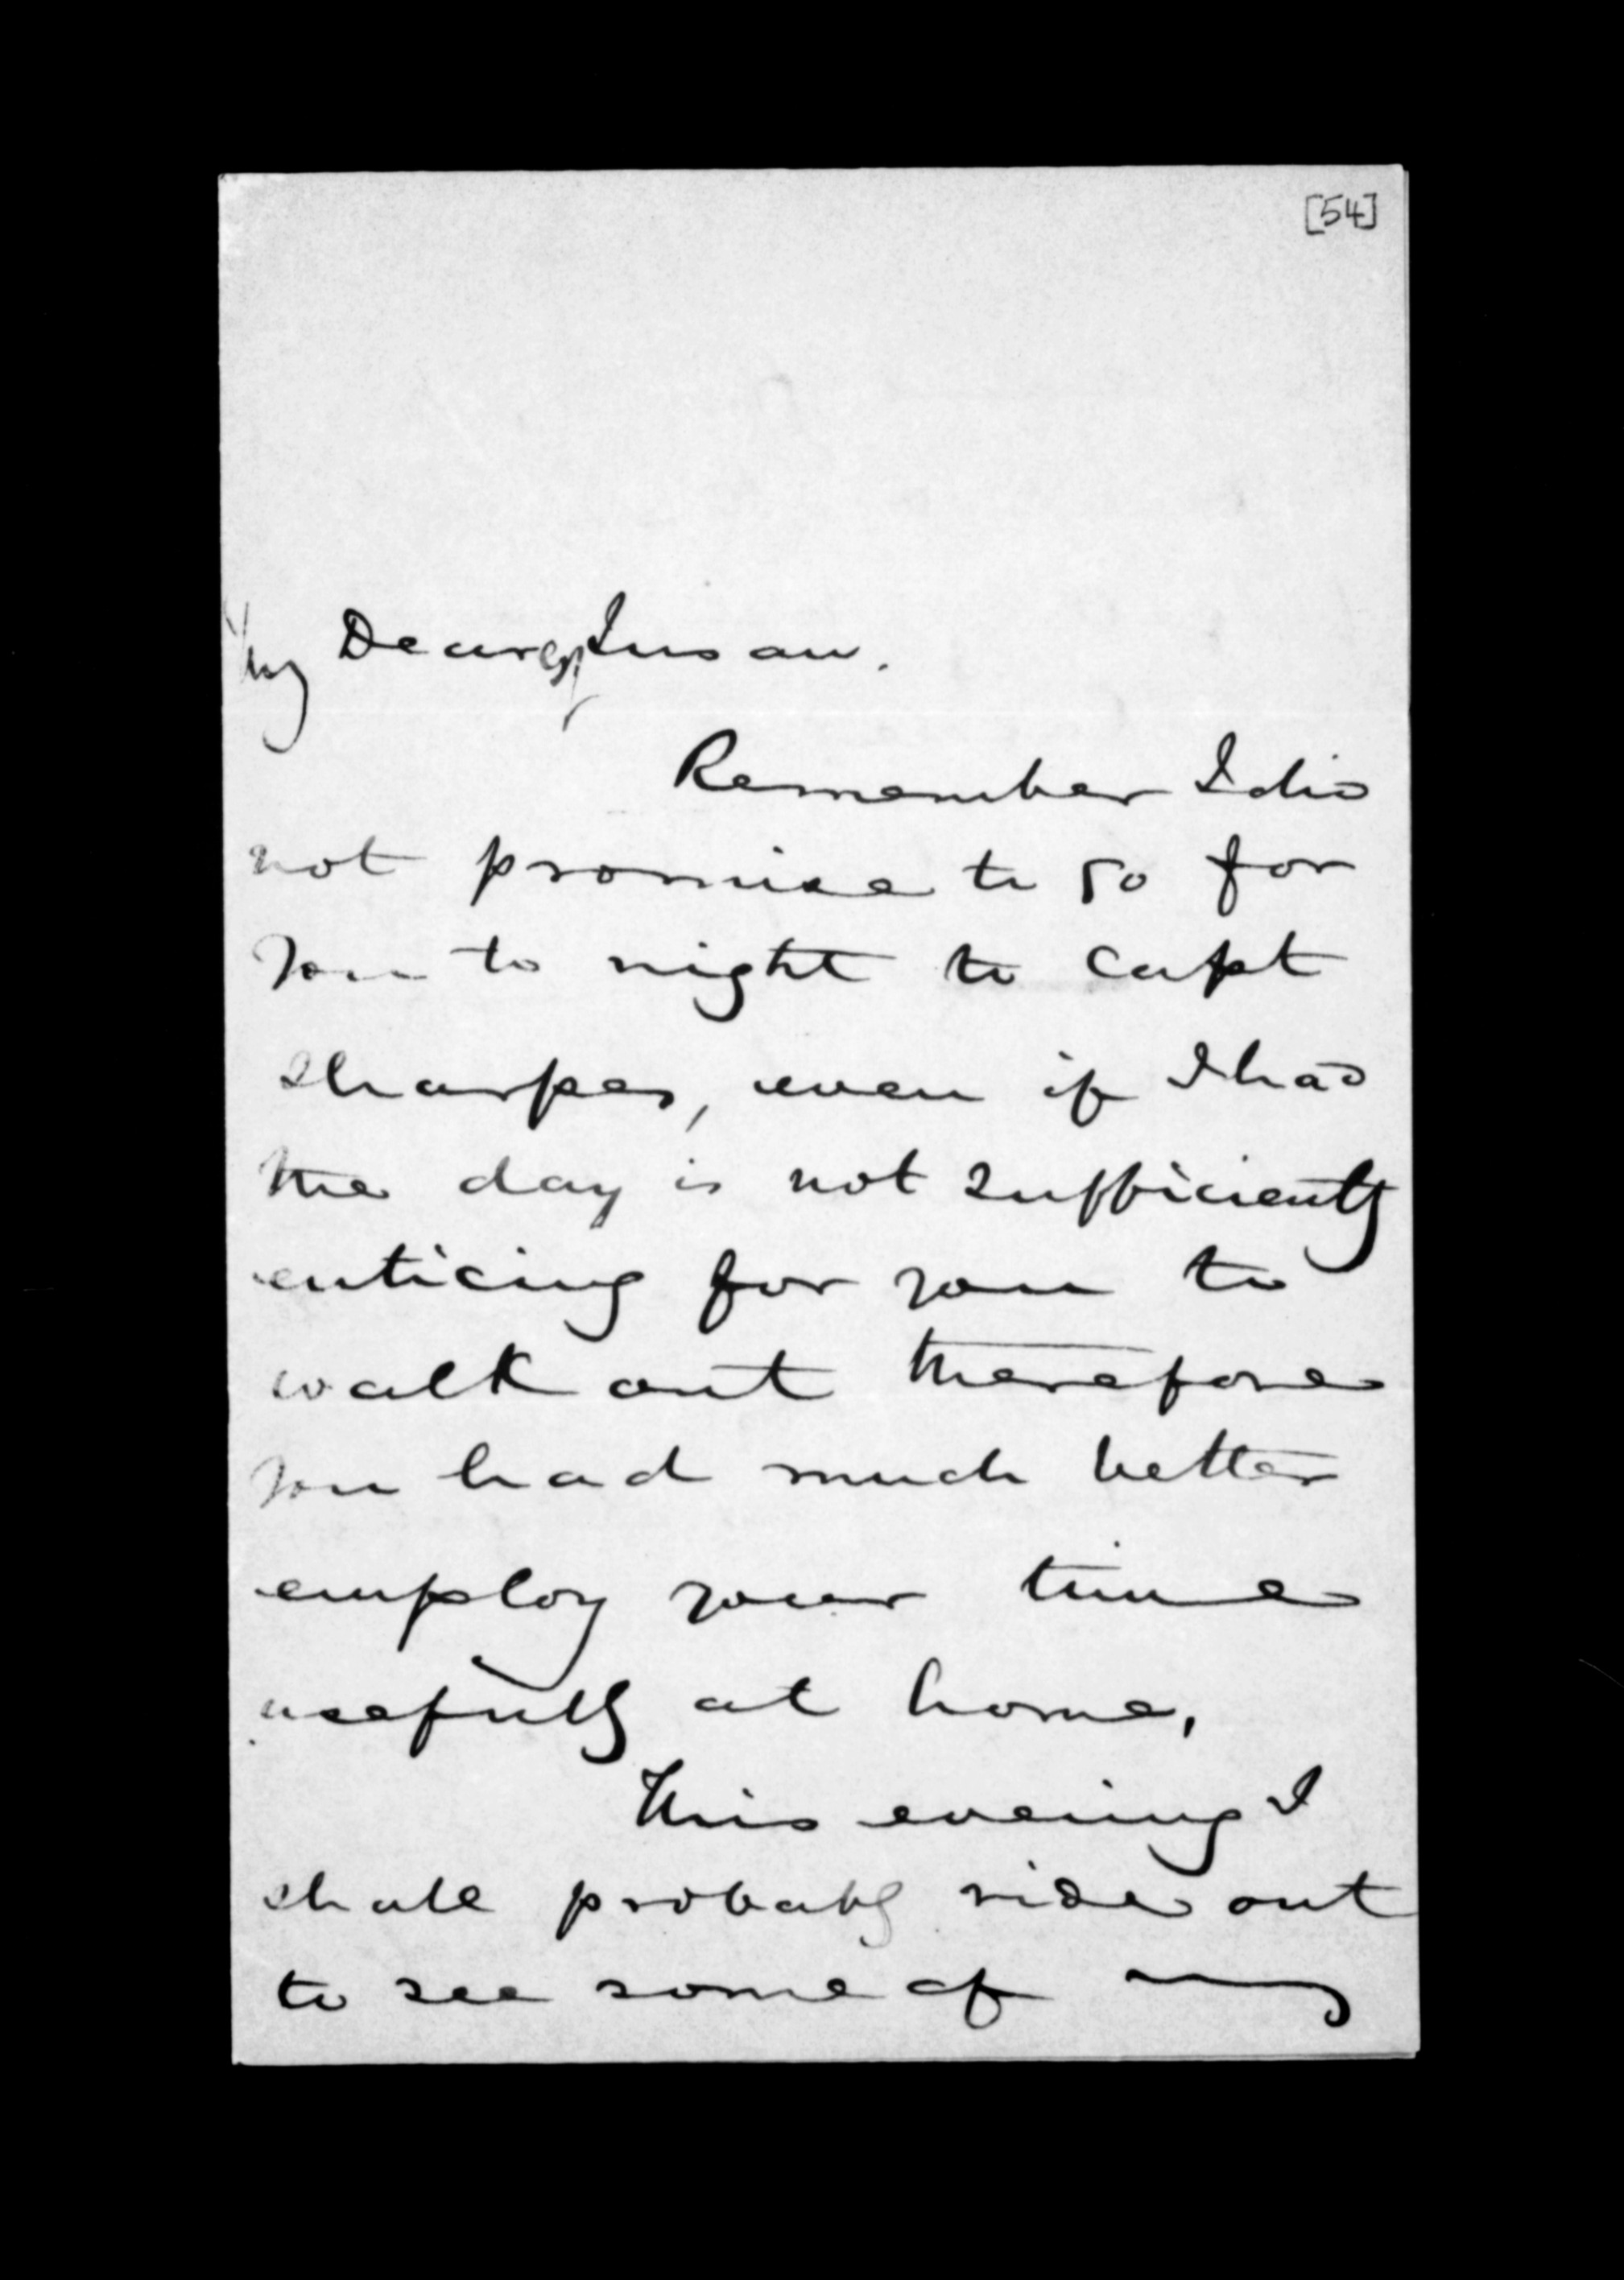 [54]
My Dearest Susan.
Remember I did
not promise to go for
you to night to Capt
Sharpes, even if I had
the day is not sufficiently
enticing for you to
walk out therefore
you had much better
employ your time
usefully at home,
This evening I
shall probably ride out
to see some of my